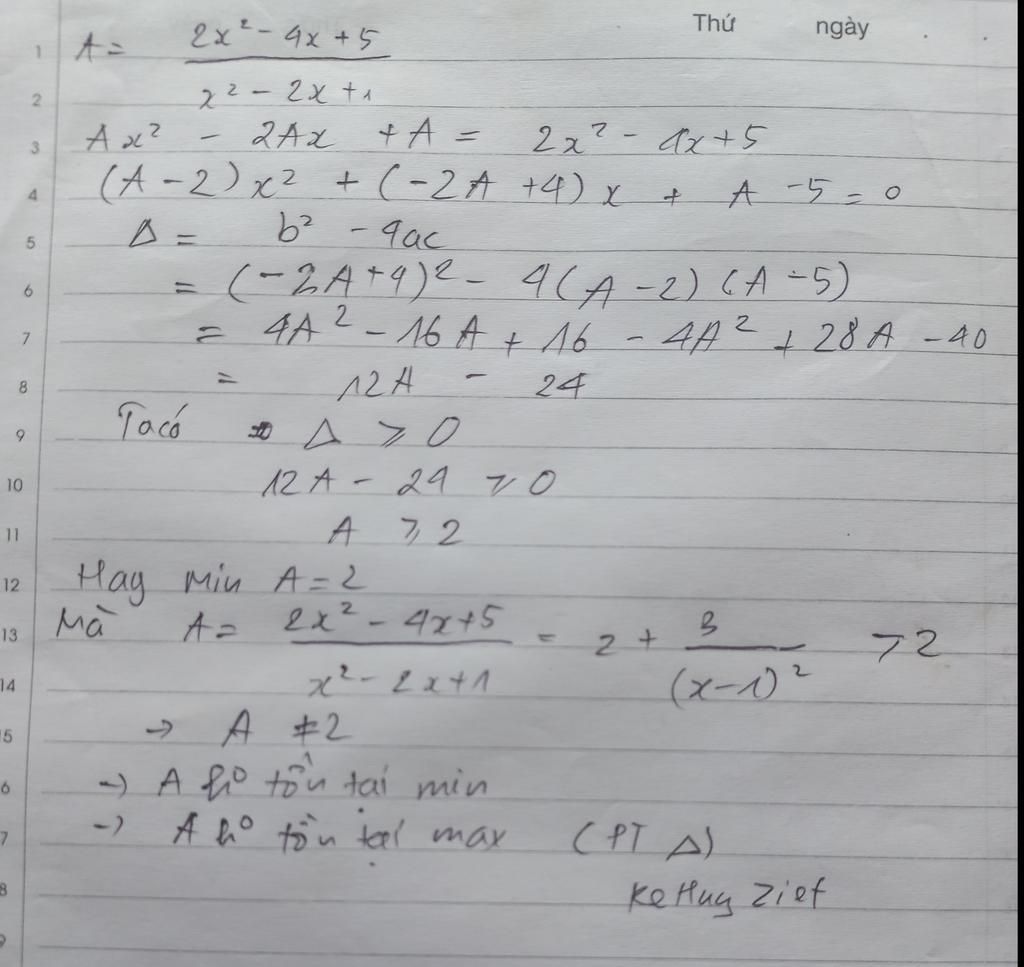 Thứ ngày . .
1 A = \frac{2x² - 4x + 5}{x² - 2x + 1}
2
3 Ax² - 2Ax + A = 2x² - 4x + 5
4 (A - 2)x² + (-2A + 4)x + A - 5 = 0
5 Δ = b² - 4ac
6 = (-2A + 4)² - 4(A - 2)(A - 5)
7 = 4A² - 16A + 16 - 4A² + 28A - 40
8 = 12A - 24
9 Ta có Δ ⩾ 0
10 12A - 24 ⩾ 0
11 A ⩾ 2
12 Hay min A = 2
13 Mà A = \frac{2x² - 4x + 5}{x² - 2x + 1} = 2 + \frac{3}{(x - 1)²} > 2
14
5 → A ≠ 2
6 → A ko tồn tại min
7 → A ko tồn tại max (PT Δ)
8 Ke Huy Zief
9